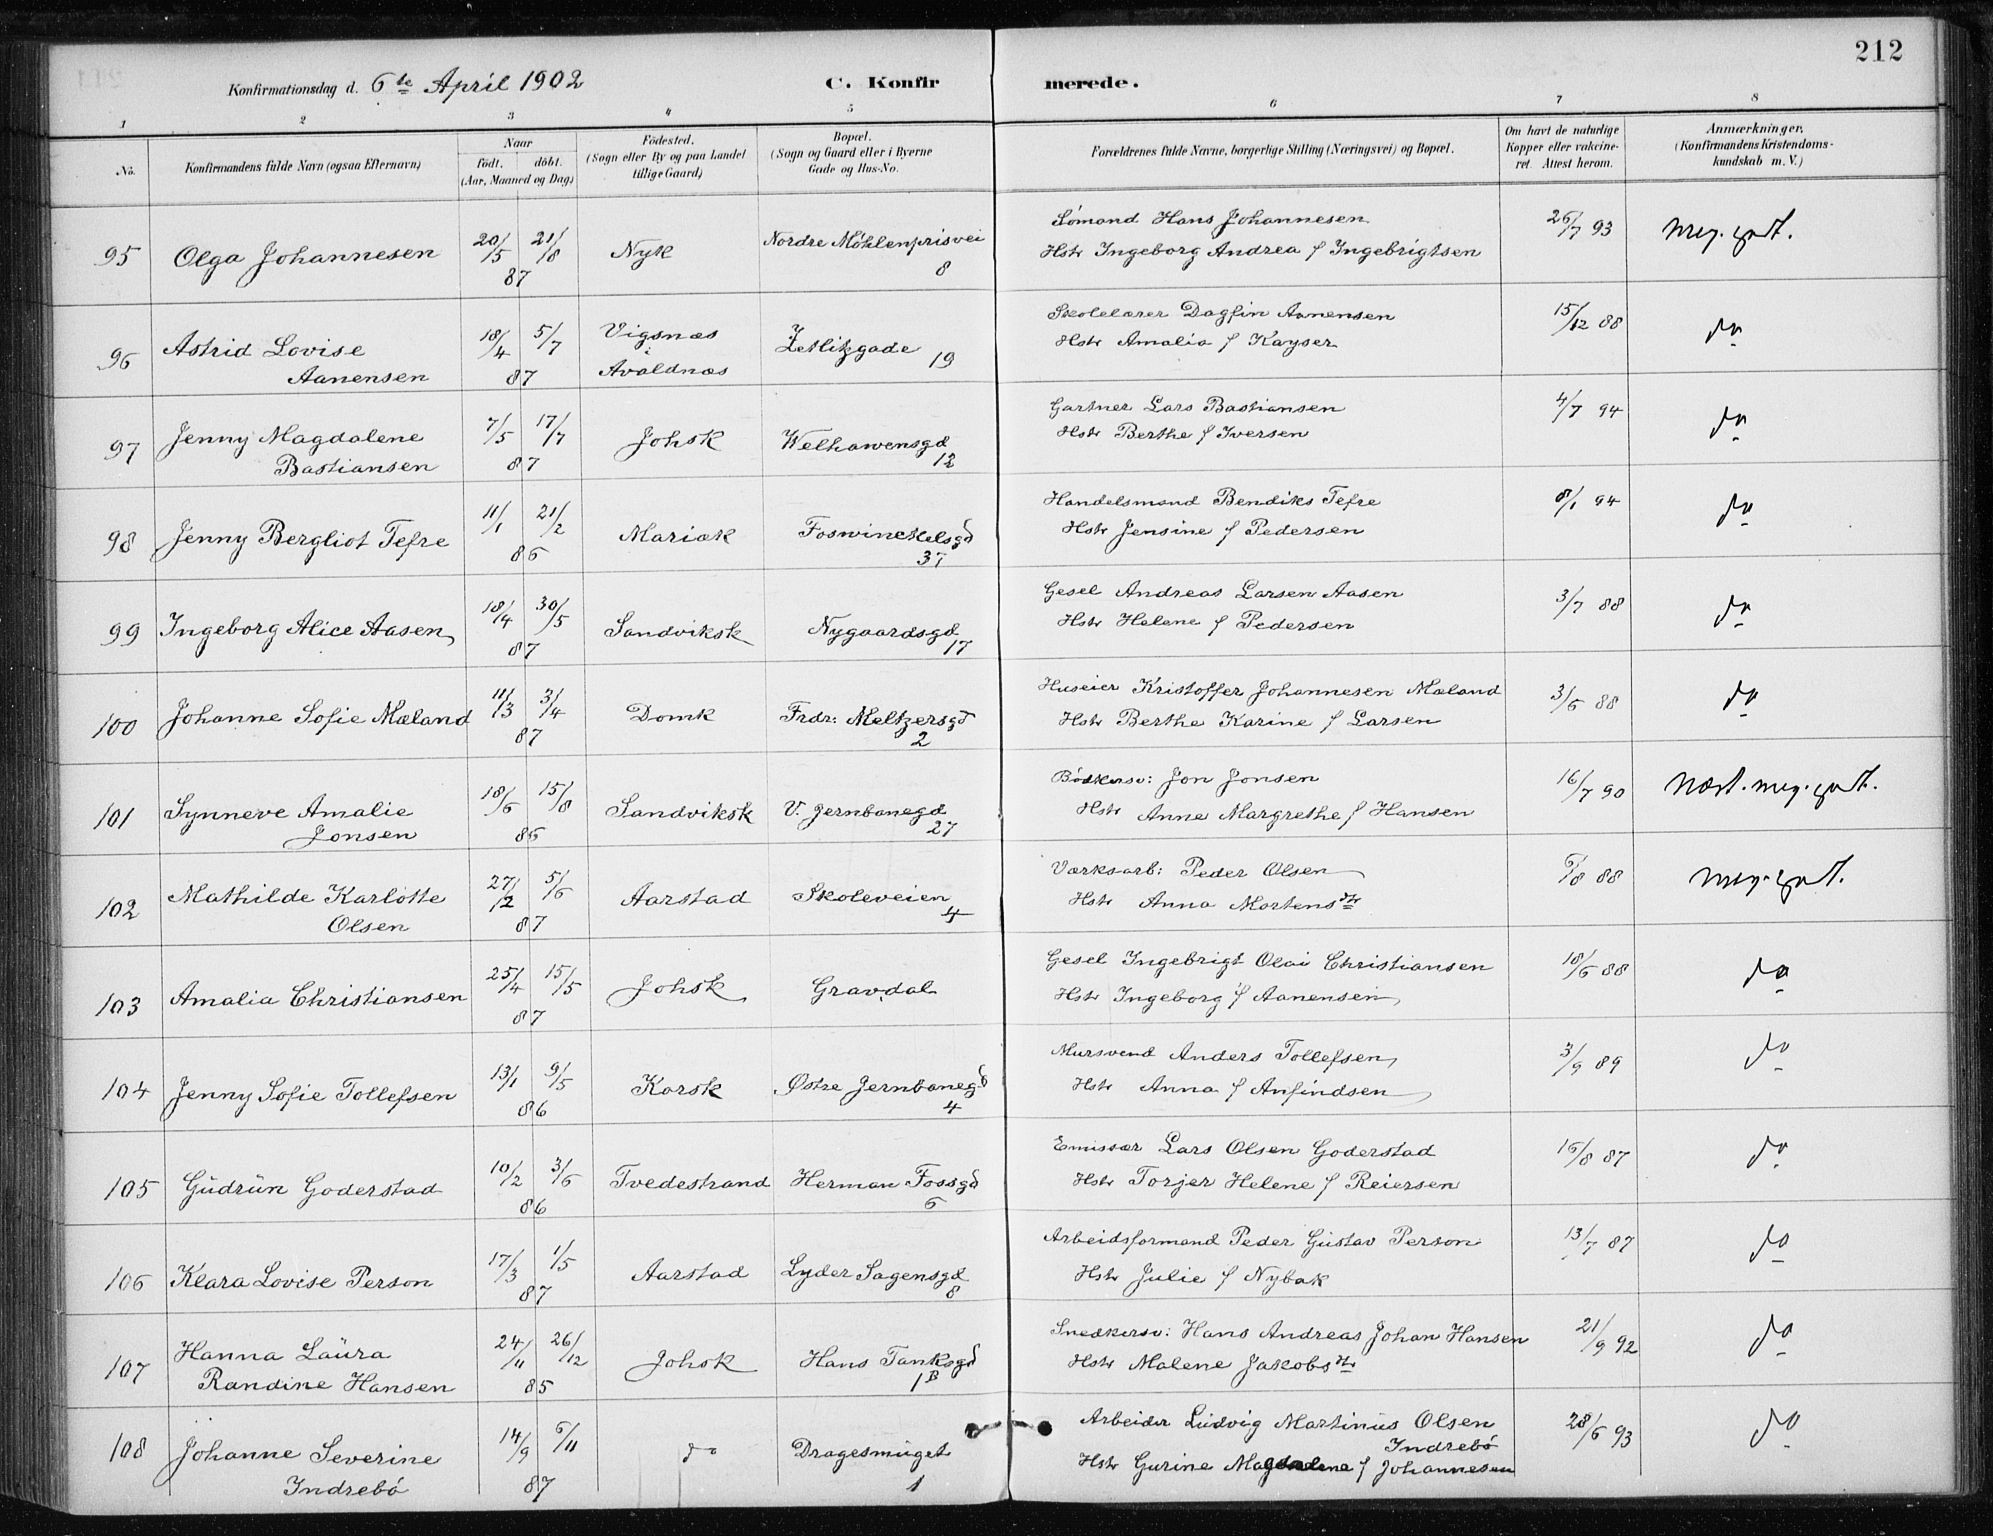 212
Konfirmationsdag d. 6te April 1902 C. Konfirmerede.
1 2 3 4 5 6 7 8
No. Konfirmandens fulde Navn (ogsaa Efternavn) Naar født. døbt. (Aar, Maaned og Dag) Fødested. (Sogn eller By og paa Landet tillige Gaard) Bopæl. (Sogn og Gaard eller i Byerne Gade og Hus-No. Forældrenes fulde Navne, borgerlige Stilling (Næringsvei) og Bopæl. Om havt de naturlige Kopper eller vakcineret. Attest herom. Anmærkninger. (Konfirmandens Kristendomskundskab m. V.)
95 Olga Johannesen 20/5 21/8 87 Nyk Nordre Møhlenprisvei 8 Sømand Hans Johannesen 26/7 93 meg. godt.
Hstr Ingeborg Andrea f Ingebrigtsen
96 Astrid Lovise Aanensen 18/4 5/7 87 Vigsnæs Avaldnæs Zetlitzgade 19 Skolelærer Dagfin Aanensen 15/12 88 do
Hstr Amalia f Kayser
97 Jenny Magdalene Bastiansen 7/5 17/7 87 Johsk Welhavensgd 12 Gartner Lars Bastiansen 4/7 94 do
Hstr Berthe f Iversen
98 Jenny Bergliot Tefre 11/1 21/2 86 Mariæk Foswinckelsgd 37 Handelsmand Bendiks Tefre 8/1 94 do
Hstr Jensine f Pedersen
99 Ingeborg Alice Aasen 18/4 30/5 87 Sandviksk Nygaardsgd 17 Gesel Andreas Larsen Aasen 3/7 88 do
Hstr Helene f Pedersen
100 Johanne Sofie Mæland 11/3 3/4 87 Domk Frdr: Meltzersgd 2 Huseier Kristoffer Johannesen Mæland 3/6 88 do
Hstr Berthe Karine f Larsen
101 Synneve Amalie Jonsen 18/6 15/8 86 Sandviksk V. Jernbanegd 27 Bødkersv: Jon Jonsen 16/7 90 Næst. meg. godt.
Hstr Anne Margrethe f Hansen
102 Mathilde Karlotte Olsen 27/12 5/6 87 Aarstad Skoleveien 4 Værksarb: Peder Olsen 6/8 88 meg. godt.
Hstr Anna Mortensdtr
103 Amalia Christiansen 25/4 15/5 87 Johsk Gravdal Gesel Ingebrigt Olai Christiansen 18/6 88 do
Hstr Ingeborg f Aanensen
104 Jenny Sofie Tollefsen 13/1 9/5 86 Korsk Østre Jernbanegd 4 Mursvend Anders Tollefsen 3/9 89 do
Hstr Anna f Anfindsen
105 Gudrun Goderstad 10/2 3/6 86 Tvedestrand Herman Fossgd 6 Emissær Lars Olsen Goderstad 16/8 87 do
Hstr Torjer Helene f Reiersen
106 Klara Lovise Person 17/3 1/5 87 Aarstad Lyder Sagensgd 8 Arbeidsformand Peder Gustav Person 13/7 87 do
Hstr Julie f Nybak
107 Hanna Laura Randine Hansen 24/11 26/12 85 Johsk Hans Tanksgd 1B Snedkersv: Hans Andreas Johan Hansen 21/9 92 do
Hstr Malene Jakobsdtr
108 Johanne Severine Indrebø 14/9 6/11 87 do Dragesmuget 1 Arbeider Ludvig Martinus Olsen Indrebø 28/6 93 do
Hstr Gurine Magdalene f Johannesen